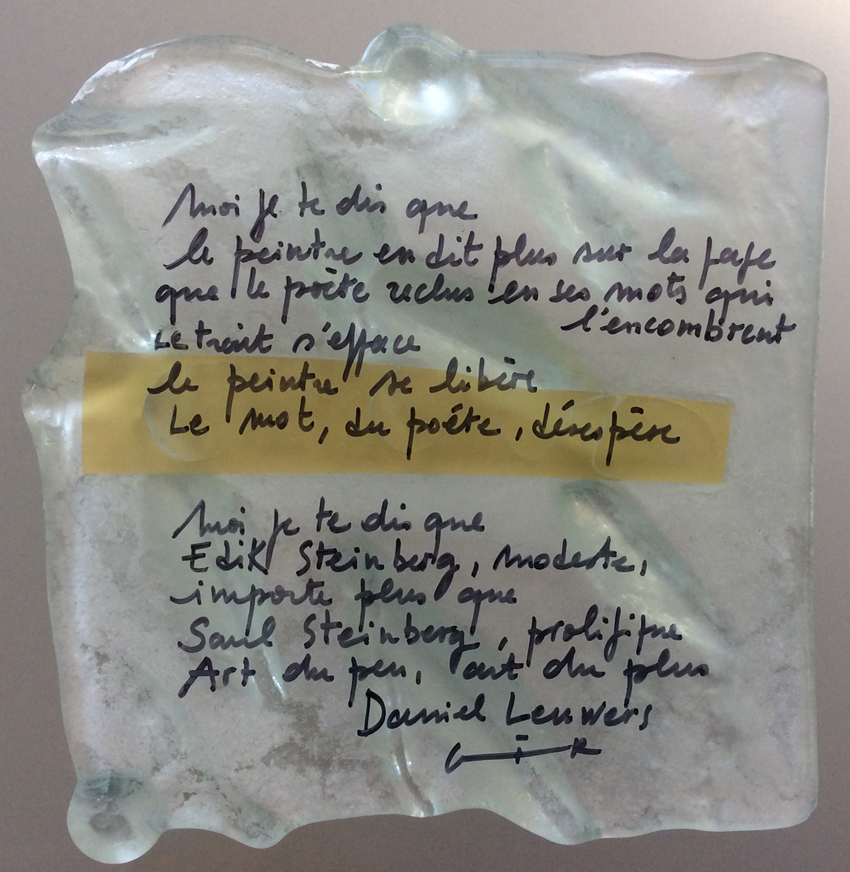 Moi je te dis que
le peintre en dit plus sur la page
que le poète reclus en ses mots qui
l'encombrent
Le trait s'efface
le peintre se libère
Le mot, du poéte, désespère
Moi je te dis que
Edik Steinberg, modeste,
importe plus que
Saul Steinberg, prolifique
Art du peu, art du plus
Daniel Leuwers